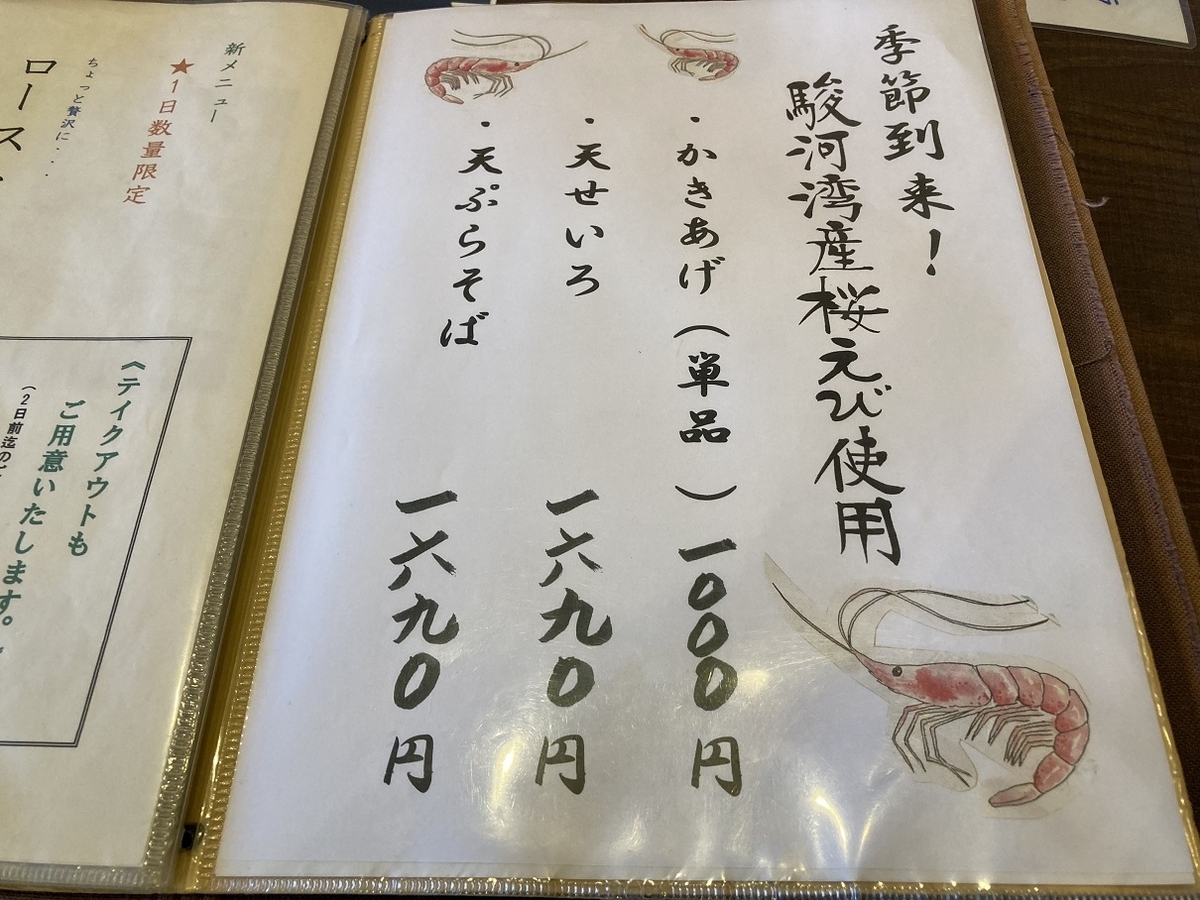 季節到来!
駿河湾産桜えび使用
・かきあげ(単品)一000円
・天せいろ 一六九0円
・天ぷらそば 一六九0円
新メニュー
★1日数量限定
ちょっと贅沢に・・・
ロース
《テイクアウトも
ご用意いたします。
(2日前迄の